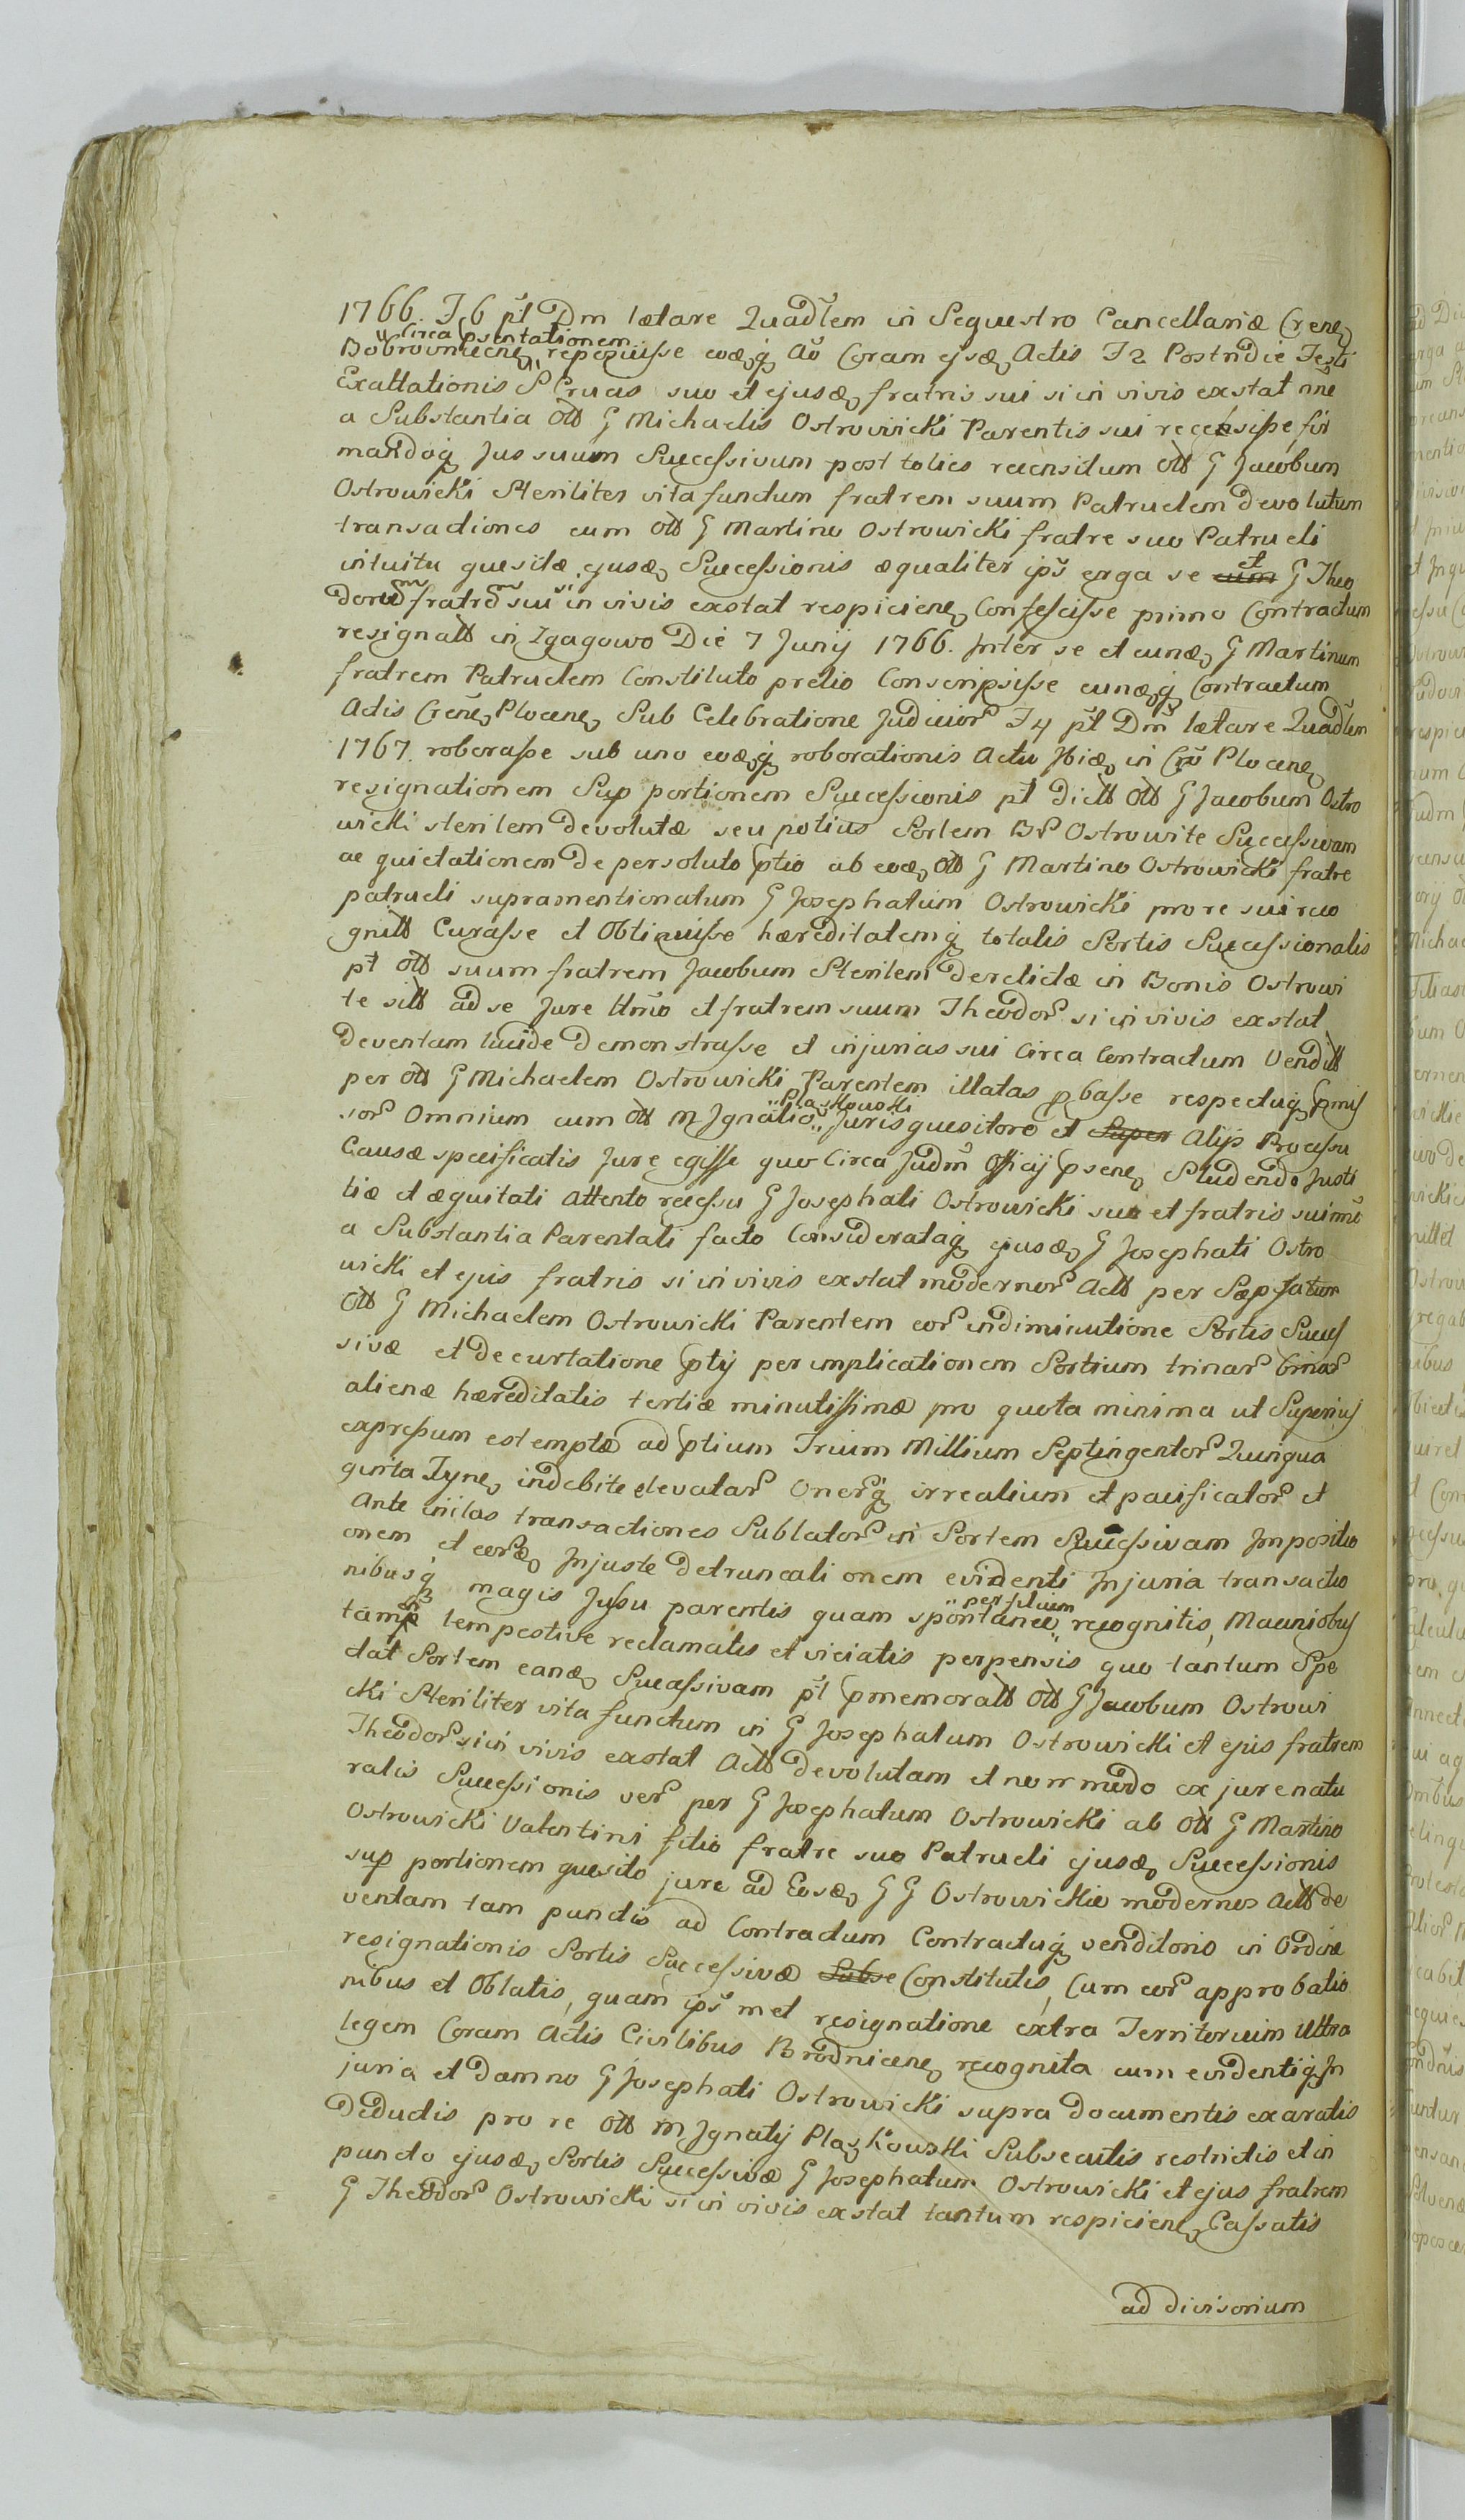 1766. F 6 pt Dm lætare Quadlem in Sequestro Cancellariæ Crene
circa psentationem
Bobrovniecne reposuisse eoæq Aõ Coram ejsæ Actis F 2 Postridie Festi
Exaltationis S Crucis suo et ejusæ fratris sui si in vivis exstat nne
a Substantia Olt G Michaelis Ostrowicki Parentis sui recessisse fir
mandoq Jus suum Successivum post toties recensitum Olt G Jacobum
Ostrowicki Steriliter vita functum fratrem suum Patruelem devolutum
transactiones cum Olt G Martino Ostrowicki fratre suo Patrueli
intuitu quesitæ ejusæ Successionis æqualiter ips erga se et G Theo
dorum fratrem suum si in vivis exstat respiciene Confecisse primo Contractum
resignatt in Zgagowo Die 7 Junij 1766. Inter se et eunæ G Martinum
fratrem Patruelem Constituto pretio Conscripsisse eunæq Contractum
Actis Crene Plocene Sub Celebratione Judicior F 4 pt Dm lætare Quadlem
1767. roborasse sub uno eoæq roborationis Actu Ibiæ in Crõ Plocene
resignationem Sup portionem Successionis pt dictt Olt G Jacobum Ostro
wicki sterilem devolutæ seu potius Sortem BS Ostrowite Successivam
ac quietationem de persoluto ptio ab eoæ Olt G Martino Ostrowicki fratre
patrueli supramentionatum G Josephatum Ostrowicki pro re sui reco
gnitt Curasse et Obtinuisse hæreditatemq totalis Sortis Successionalis
pt Olt suum fratrem Jacobum Sterilem derelictæ in Bonis Ostrowi
te sitt ad se Jure Urño et fratrem suum Theodor si in vivis exstat
deventam lucide Demonstrasse et injurias sui Circa Contractum Venditt
per Olt G Michaelem Ostrowicki Parentem illatas pbasse respectuq pmis
Plaskowski
sor Omnium cum Olt M Ignatio Juris quesitore et Super Alijs Processu
Causæ specificatis Jure egisse quo Circa Judm Officij psene Studendo Justi
tiæ et æquitati Attento recessu G Josephati Ostrowicki suo et fratris sui nne
a Substantia Parentali facto Considerataq ejusæ G Josephati Ostro
wicki et ejus fratris si in vivis exstat modernor Actt per Sæpfatum
Olt G Michaelem Ostrowicki Parentem eor indiminutione Sortis Succes
sivæ et decurtatione ptij per implicationem Sortium trinar binar
alienæ hæreditatis tertiæ minutissimæ pro quota minima ut Superius
expressum est emptæ ad ptium Trium Millium Septingentor Quinqua
ginta Tyne indebite elevatar Onerq irrealium et pacificator et
Ante initas transactiones Sublator in Sortem Successivam Impositio
onem et eoræ Injuste detruncationem evidenti Injuria transactio
nibusq magis Jussu parentis quam spontanee per filium recognitis, Mauniobus
tamp in tempestive reclamatis et viciatis perpensis quo tantum Spe
ctat Sortem eanæ Successivam pt pmemoratt Olt G Jacobum Ostrowi
cki Steriliter vita functum in G Josephatum Ostrowicki et ejus fratrem
Theodor si in vivis exstat Actt devolutam et non modo ex jure natu
ralis Successionis ver per G Josephatum Ostrowicki ab Olt G Martino
Ostrowicki Valentini filio fratre suo Patrueli ejusæ Successionis
sup portionem quesito jure ad Eosæ G G Ostrowickie modernos Actt de
ventam tam punctis ad Contractum Contractuq venditorio in Ordine
resignationis Sortis Successivæ Subse Constitutis, Cum eor approbatio
nibus et Oblatis, quam ips met resignatione extra Territorium Ultra
legem Coram Actis Civilibus Brodnicene recognita cum evidentiq In
juria et damno G Josephati Ostrowicki supra documentis exaratis
Deductis pro re Olt M Ignatij Plaskowski Subsecutis restrictis et in
puncto ejusæ Sortis Successivæ G Josephatum Ostrowicki et ejus fratrem
G Theodor Ostrowicki si in vivis exstat tantum respiciene Cassatis
ad divisorium